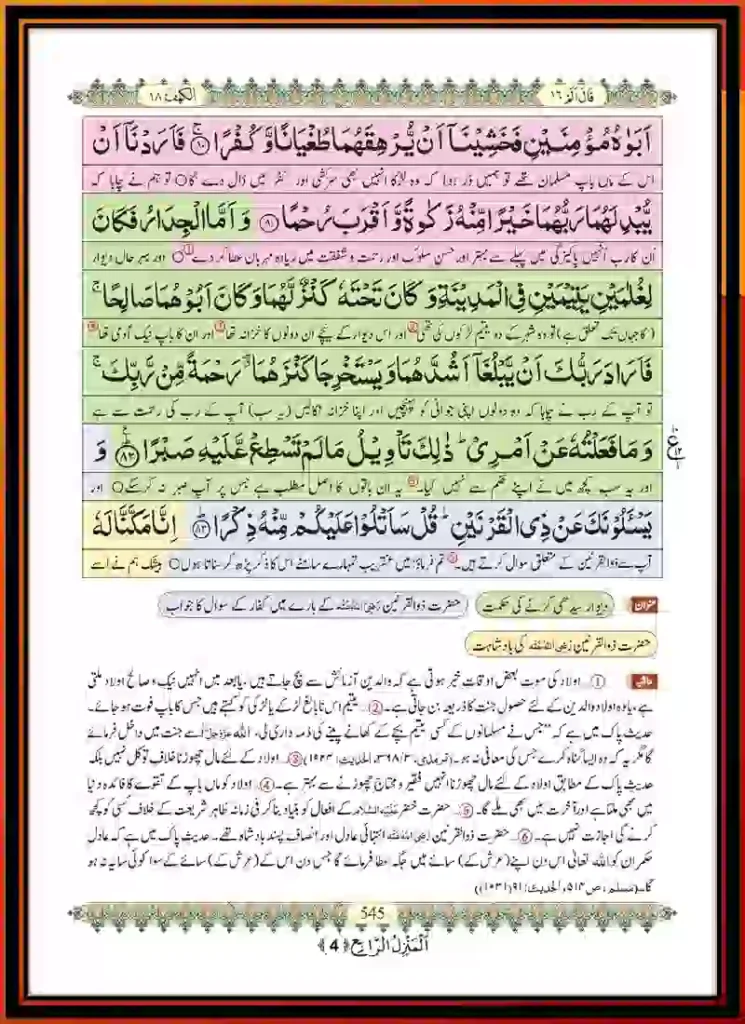 قال الم ١٦
الكهف ١٨
اَبَوٰهُ مُؤْمِنَیْنِ فَخَشِیْنَاۤ اَنْ یُّرْهِقَهُمَا طُغْیَانًا وَّ كُفْرًاۚ(۸۰) فَاَرَدْنَاۤ اَنْ
اس کے ماں باپ مسلمان تھے تو ہمیں ڈر ہوا کہ وہ لڑکا انہیں بھی سرکشی اور کفر میں ڈال دے گا ○ تو ہم نے چاہا کہ
یُّبْدِلَهُمَا رَبُّهُمَا خَیْرًا مِّنْهُ زَكٰوةً وَّ اَقْرَبَ رُحْمًا(۸۱) وَ اَمَّا الْجِدَارُ فَكَانَ
ان کا رب انہیں پاکیزگی میں پہلے سے بہتر اور حسن سلوک اور رحمت و شفقت میں زیادہ مہربان عطا کر دے ①○ اور بہر حال دیوار
لِغُلٰمَیْنِ یَتِیْمَیْنِ فِی الْمَدِیْنَةِ وَ كَانَ تَحْتَهٗ كَنْزٌ لَّهُمَا وَ كَانَ اَبُوْهُمَا صَالِحًاۚ
(کا جہاں تک تعلق ہے) تو وہ شہر کے دو یتیم لڑکوں کی تھی ② اور اس دیوار کے نیچے ان دونوں کا خزانہ تھا ③ اور ان کا باپ نیک آدمی تھا ④
فَاَرَادَ رَبُّكَ اَنْ یَّبْلُغَاۤ اَشُدَّهُمَا وَ یَسْتَخْرِجَا كَنْزَهُمَا رَحْمَةً مِّنْ رَّبِّكَۚ
تو آپ کے رب نے چاہا کہ وہ دونوں اپنی جوانی کو پہنچیں اور اپنا خزانہ نکالیں (یہ سب) آپ کے رب کی رحمت سے ہے
وَ مَا فَعَلْتُهٗ عَنْ اَمْرِیْؕ ذٰلِكَ تَاْوِیْلُ مَا لَمْ تَسْطِعْ عَّلَیْهِ صَبْرًاؕ(۸۲) وَ
ع
اور یہ سب کچھ میں نے اپنے حکم سے نہیں کیا۔⑤ یہ ان باتوں کا اصل مطلب ہے جس پر آپ صبر نہ کر سکے ○ اور
یَسْــٴَـلُوْنَكَ عَنْ ذِی الْقَرْنَیْنِؕ قُلْ سَاَتْلُوْا عَلَیْكُمْ مِّنْهُ ذِكْرًاؕ(۸۳) اِنَّا مَكَّنَّا لَهٗ
آپ سے ذوالقرنین کے متعلق سوال کرتے ہیں۔⑥ تم فرماؤ: میں عنقریب تمہارے سامنے اس کا ذکر پڑھ کر سناتا ہوں ○ بیشک ہم نے اسے
عنوان
دیوار سیدھی کرنے کی حکمت
حضرت ذوالقرنین رَضِیَ اللہُ عَنْہُ کے بارے میں کفار کے سوال کا جواب
حضرت ذوالقرنین رَضِیَ اللہُ عَنْہُ کی بادشاہت
حاشیہ
①… اولاد کی موت بعض اوقات خیر ہوتی ہے کہ والدین آزمائش سے بچ جاتے ہیں، یا بعد میں انہیں نیک و صالح اولاد ملتی
ہے، یا وہ اولاد والدین کے لئے حصول جنت کا ذریعہ بن جاتی ہے۔ ②… یتیم اس نابالغ لڑکے یا لڑکی کو کہتے ہیں جس کا باپ فوت ہو جائے۔
حدیث پاک میں ہے کہ ”جس نے مسلمانوں کے کسی یتیم بچے کے کھانے پینے کی ذمہ داری لی، اللہ عَزَّوَجَلَّ اسے جنت میں داخل فرمائے
گا مگر یہ کہ وہ ایسا گناہ کرے جس کی معافی نہ ہو۔ (ترمذی، ۳/۳۶۸، الحدیث: ۱۹۲۴) ③… اولاد کے لئے مال چھوڑنا خلاف توکل نہیں بلکہ
حدیث پاک کے مطابق اولاد کے لئے مال چھوڑنا انہیں فقیر و محتاج چھوڑنے سے بہتر ہے۔ ④… اولاد کو ماں باپ کے تقوے کا فائدہ دنیا
میں بھی ملتا ہے اور آخرت میں بھی ملے گا۔ ⑤… حضرت خضر عَلَیْہِ السَّلَام کے افعال کو بنیاد بنا کر فی زمانہ ظاہر شریعت کے خلاف کسی کو کچھ
کرنے کی اجازت نہیں ہے۔ ⑥… حضرت ذوالقرنین رَضِیَ اللہُ عَنْہُ انتہائی عادل اور انصاف پسند بادشاہ تھے۔ حدیث پاک میں ہے کہ عادل
حکمران کو اللہ تعالیٰ اس دن اپنے (عرش کے) سائے میں جگہ عطا فرمائے گا جس دن اس کے (عرش کے) سائے کے سوا کوئی سایہ نہ ہو
گا۔ (مسلم، ص ۵۱۴، الحدیث: ۹۱(۱۰۳۱))
545
اَلْمَنْزِلُ الرَّابِع ﴿4﴾